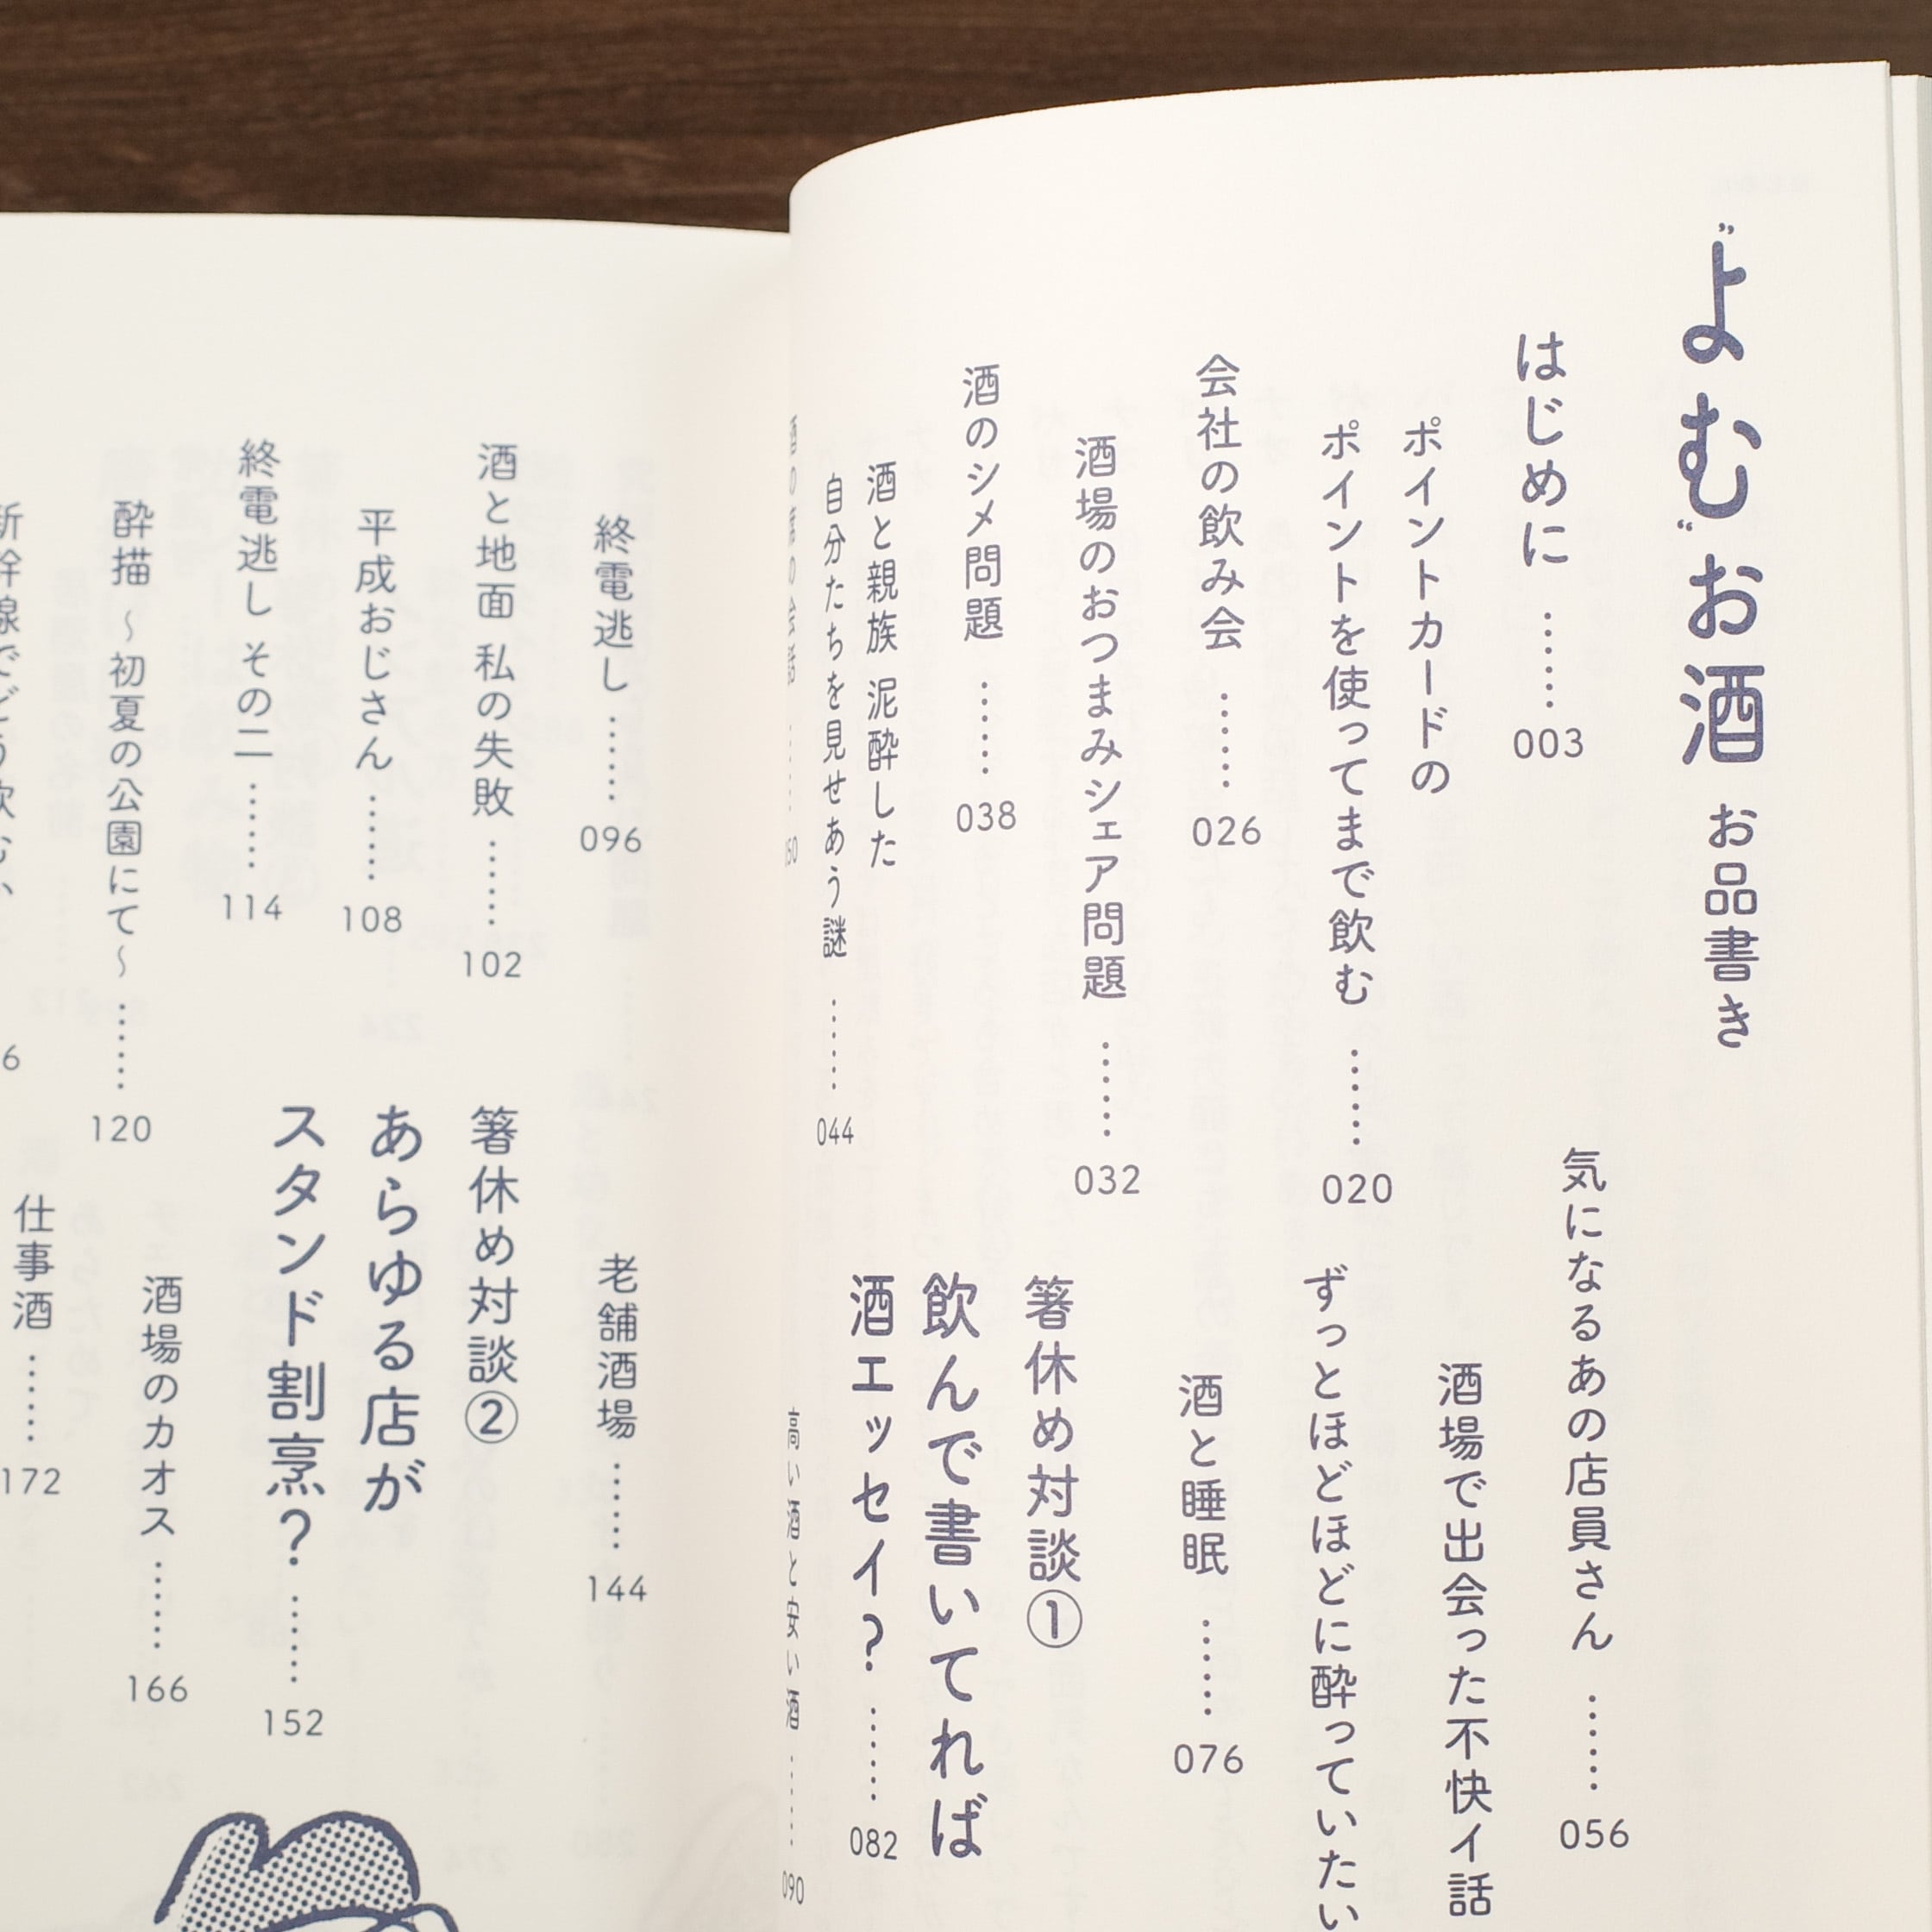 ”よむ“お酒 お品書き
はじめに …… 003
ポイントカードの
ポイントを使ってまで飲む …… 020
会社の飲み会 …… 026
酒場のおつまみシェア問題 …… 032
酒のシメ問題 …… 038
酒と親族 泥酔した
自分たちを見せあう謎 …… 044
酒の席の会話 …… 050
気になるあの店員さん …… 056
酒場で出会った不快イ話
ずっとほどほどに酔っていたい
酒と睡眠 …… 076
箸休め対談①
飲んで書いてれば
酒エッセイ? …… 082
高い酒と安い酒 …… 090
終電逃し …… 096
酒と地面 私の失敗 …… 102
平成おじさん …… 108
終電逃し その二 …… 114
酔描 〜初夏の公園にて〜 …… 120
新幹線でどう飲む、
6
老舗酒場 …… 144
箸休め対談②
あらゆる店が
スタンド割烹? …… 152
酒場のカオス …… 166
仕事酒 …… 172